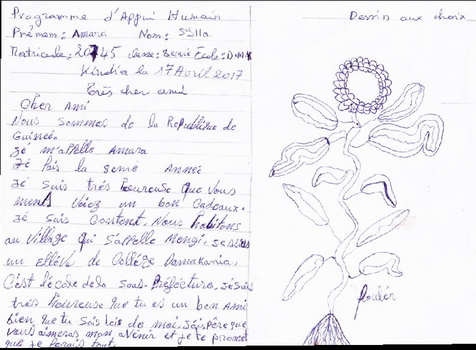 Programme d'Appui Humain
Dessin aux choix
Prénom: Amara Nom: Sylla
Matricule: 20745 classe: 8emie École: D.M.K
Kindia le 17 Avril 2017
Très cher ami
Cher Ami
Nous Sommes de la République de
Guinée.
Jé m'appelle Amara
Jé fais la 8eme Année
Je suis très heureuse que vous
Voiez un bon Cadeaux.
Je suis Content, Nous habitons
au Village qui s'appelle Mongi, Je suis
un Ellève de Collège Damakania.
C'est l'école de la Sous-Préfecture, Je suis
très heureuse que tu es un bon Ami
bien que tu sois loin de moi, J'éspère que
vous aimeras mon avenir et je te promet
que je ferais tout
fleubér